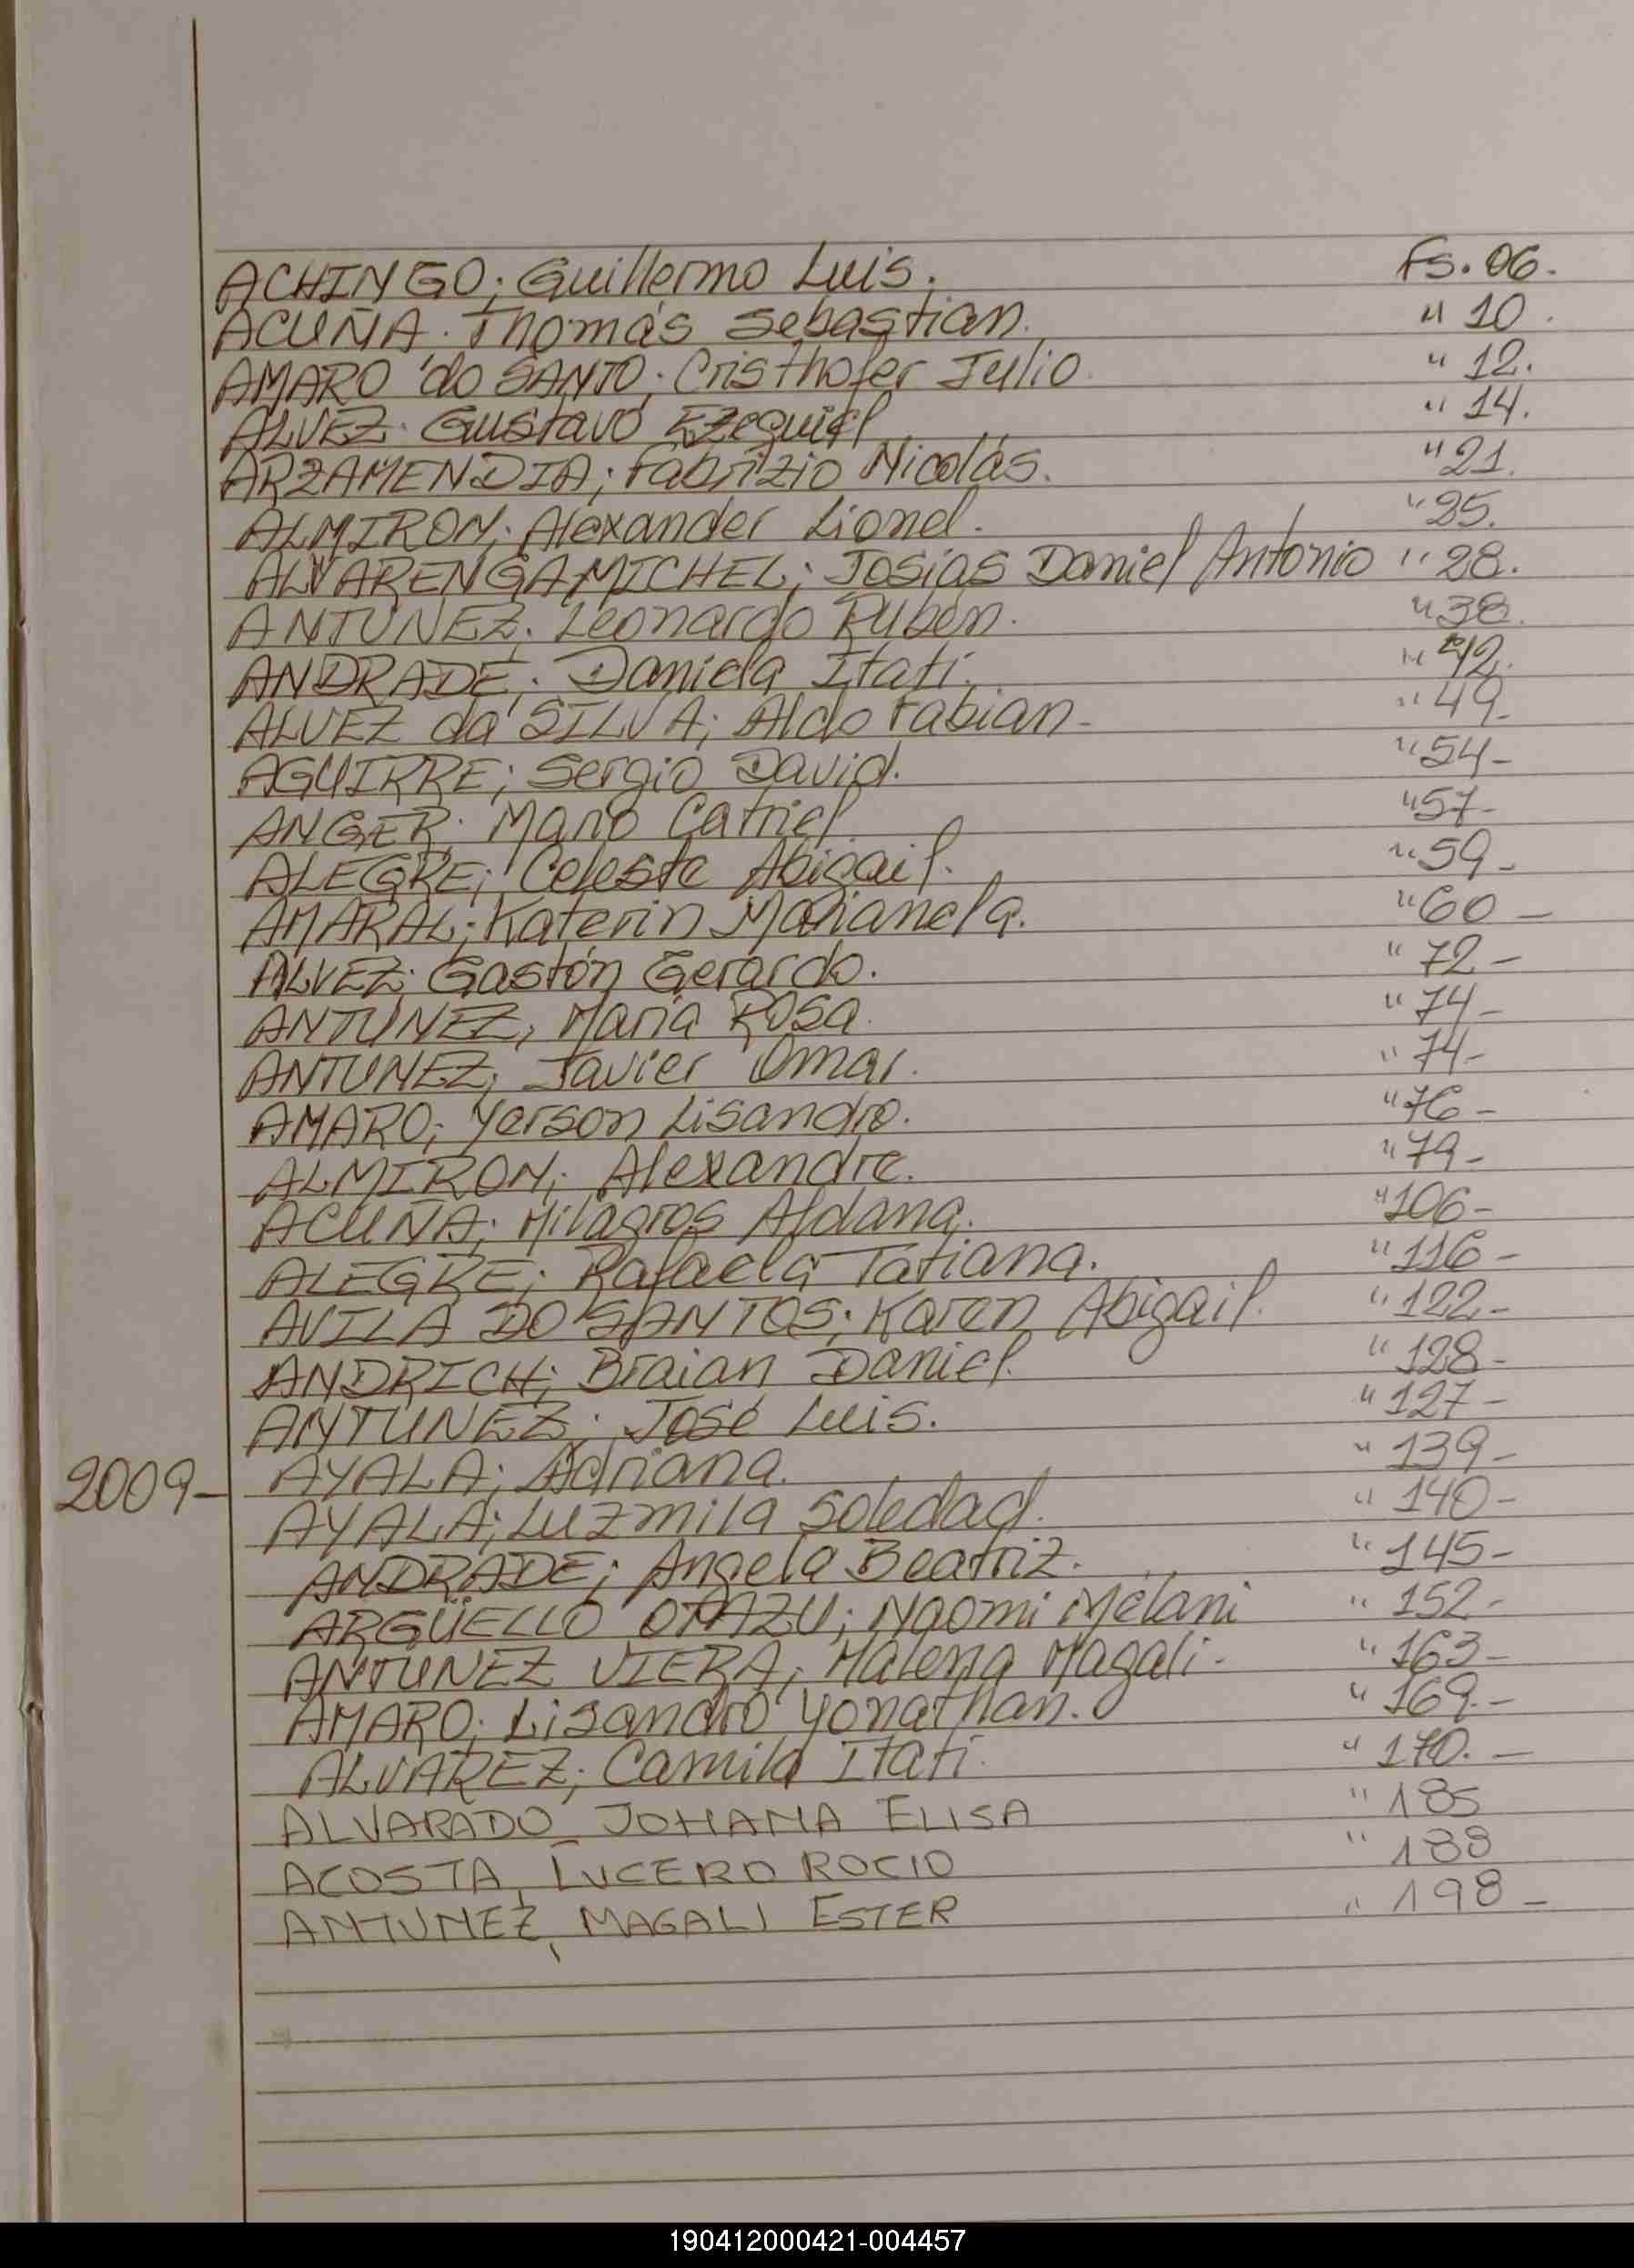 ACHINGO; Guillermo Luis. Fs. 06.
ACUÑA. Thomás Sebastian. " 10.
AMARO do SANTO; Cristhofer Julio " 12.
ALVEZ. Gustavo Ezequiel " 14.
ARZAMENDIA; Fabrizio Nicolás. " 21.
ALMIRON; Alexander Lionel. " 25.
ALVARENGA MICHEL; Josías Daniel Antonio " 28.
ANTUNEZ; Leonardo Rubén. " 38.
ANDRADE; Daniela Itatí. " 42.
ALVEZ da SILVA; Aldo Fabian- " 49-
AGUIRRE; Sergio David. " 54-
ANGER; Mario Catriel " 57-
ALEGRE; Celeste Abigail. " 59-
AMARAL; Katerin Marianela. " 60-
ALVEZ; Gastón Gerardo. " 72-
ANTUNEZ, María Rosa. " 74-
ANTUNEZ; Javier Omar. " 74-
AMARO; Yerson Lisandro. " 76-
ALMIRON; Alexandre. " 79-
ACUÑA; Milagros Aldana. " 106-
ALEGRE; Rafaela Tatiana. " 116-
AVILA DO SANTOS; Karen Abigail. " 122-
ANDRICH; Braian Daniel. " 128-
ANTUNEZ; José Luis. " 127-
2009- AYALA; Adriana. " 139-
AYALA; Luzmila Soledad. " 140-
ANDRADE; Angela Beatriz. " 145-
ARGÜELLO OTAZU; Naomi Melani " 152-
ANTUNEZ VIERA; Malena Magali- " 163-
AMARO; Lisandro Yonathan. " 169.-
ALVAREZ; Camila Itatí. " 170.-
ALVARADO_ JOHANA ELISA " 185
ACOSTA, LUCERO ROCIO " 188
ANTUNEZ, MAGALI ESTER " 198-
190412000421-004457